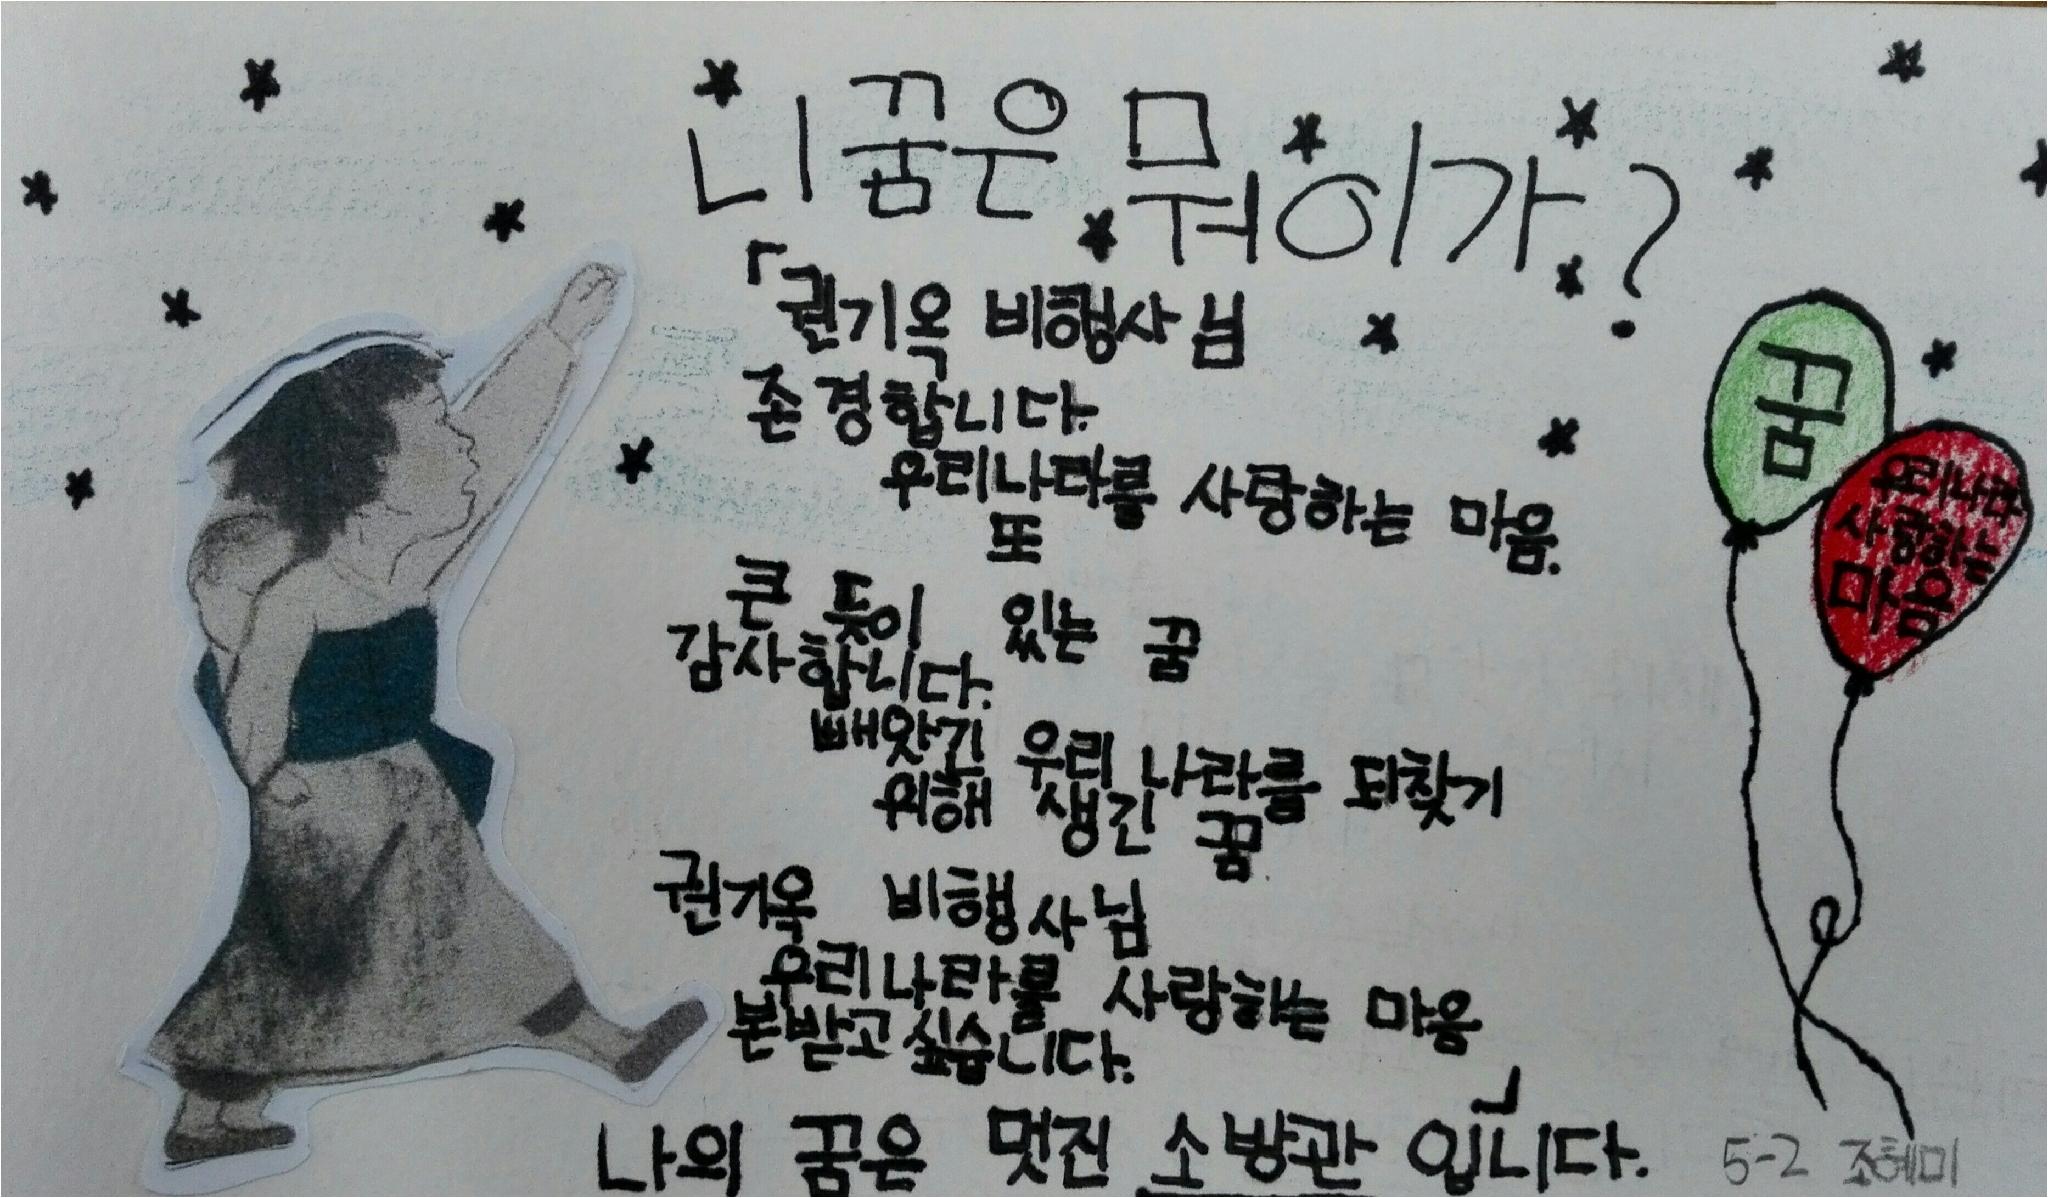 니 꿈은 뭐이가?
「권기옥 비행사님
존경합니다.
우리나라를 사랑하는 마음.
또
큰 뜻이 있는 꿈
감사합니다.
빼앗긴 우리나라를 되찾기
위해 생긴 꿈
권기옥 비행사님
우리나라를 사랑하는 마음
본받고 싶습니다.」
나의 꿈은 멋진 소방관 입니다.
꿈
우리나라
사랑하는
마음
5-2 조혜미